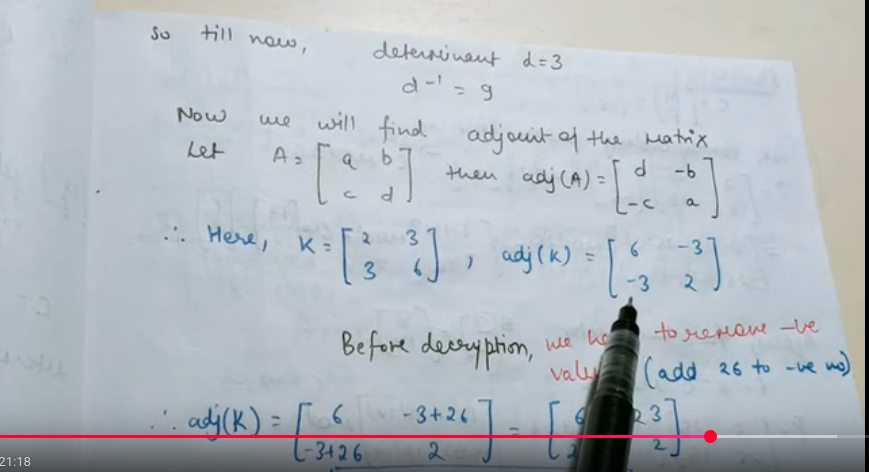 so till now, determinant d=3
d⁻¹ = 9
Now we will find adjoint of the matrix
Let A = [ a b ] then adj(A) = [ d -b ]
[ c d ] [ -c a ]
∴ Here, K = [ 2 3 ] , adj(K) = [ 6 -3 ]
[ 3 6 ] [ -3 2 ]
Before decryption, we to remove -ve
(add 26 to -ve no)
∴ adj(K) = [ 6 -3+26 ] = [ 6 23 ]
[ -3+26 2 ] [ 2 2 ]
21:18